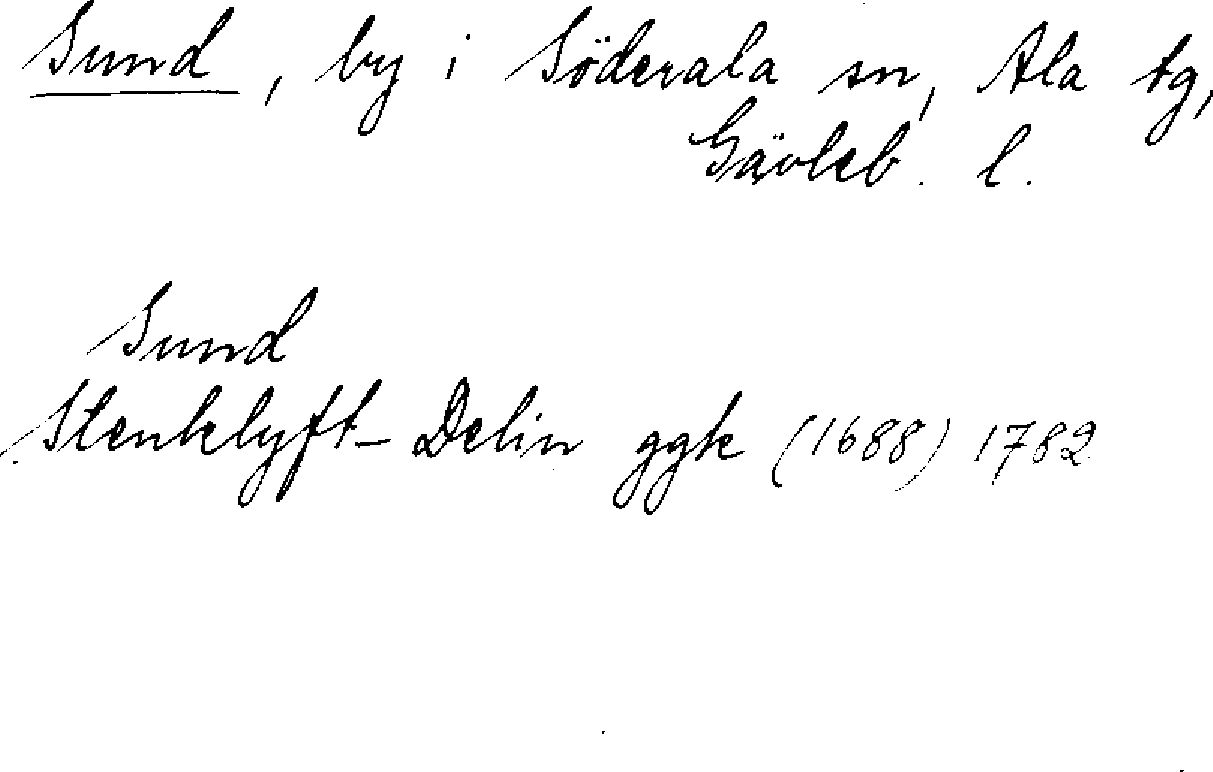 Sund, by i Söderala sn, Ala tg,
Gävleb. l.
Sund
Stenklyft- Delin ggk (1688) 1782